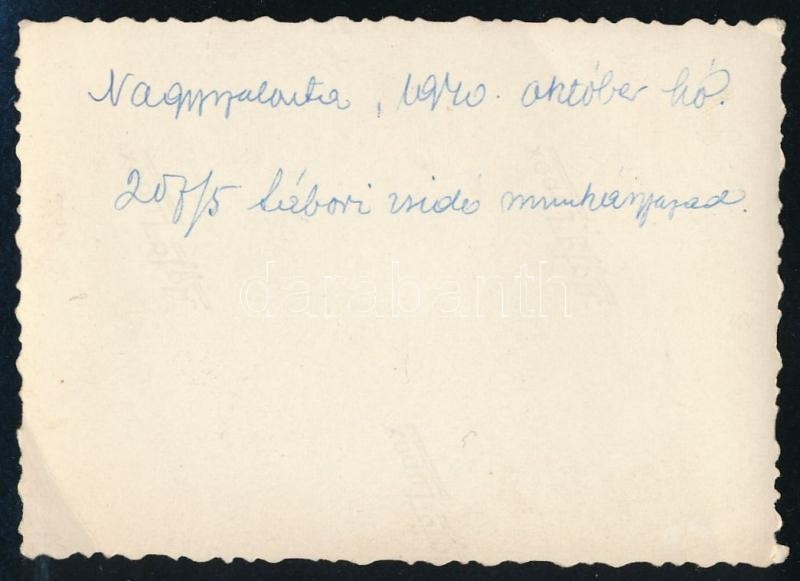 Nagyszalonta, 1940. október hó.
207/5 tábori zsidó munkásszázad.
darabanth